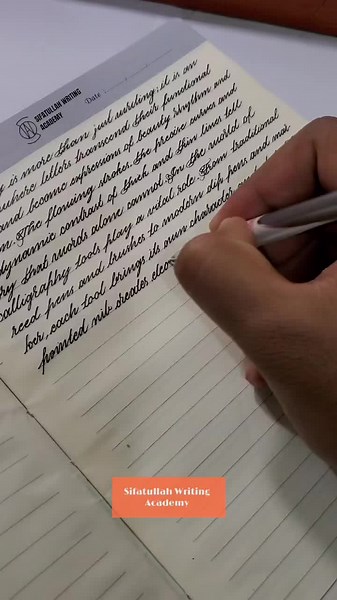 SIFATULLAH WRITING
ACADEMY
Date
is more than just writing; it is an
where letters transcend their functional
and become expressions of beauty rhythm and
The flowing strokes, the precise curves and
dynamic contrast of thick and thin lines tell
ry that words alone cannot In the world of
calligraphy tools play a vital role From traditional
reed pens and brushes to modern dip pens and
each tool brings its own character
pointed nib creates
Sifatullah Writing
Academy